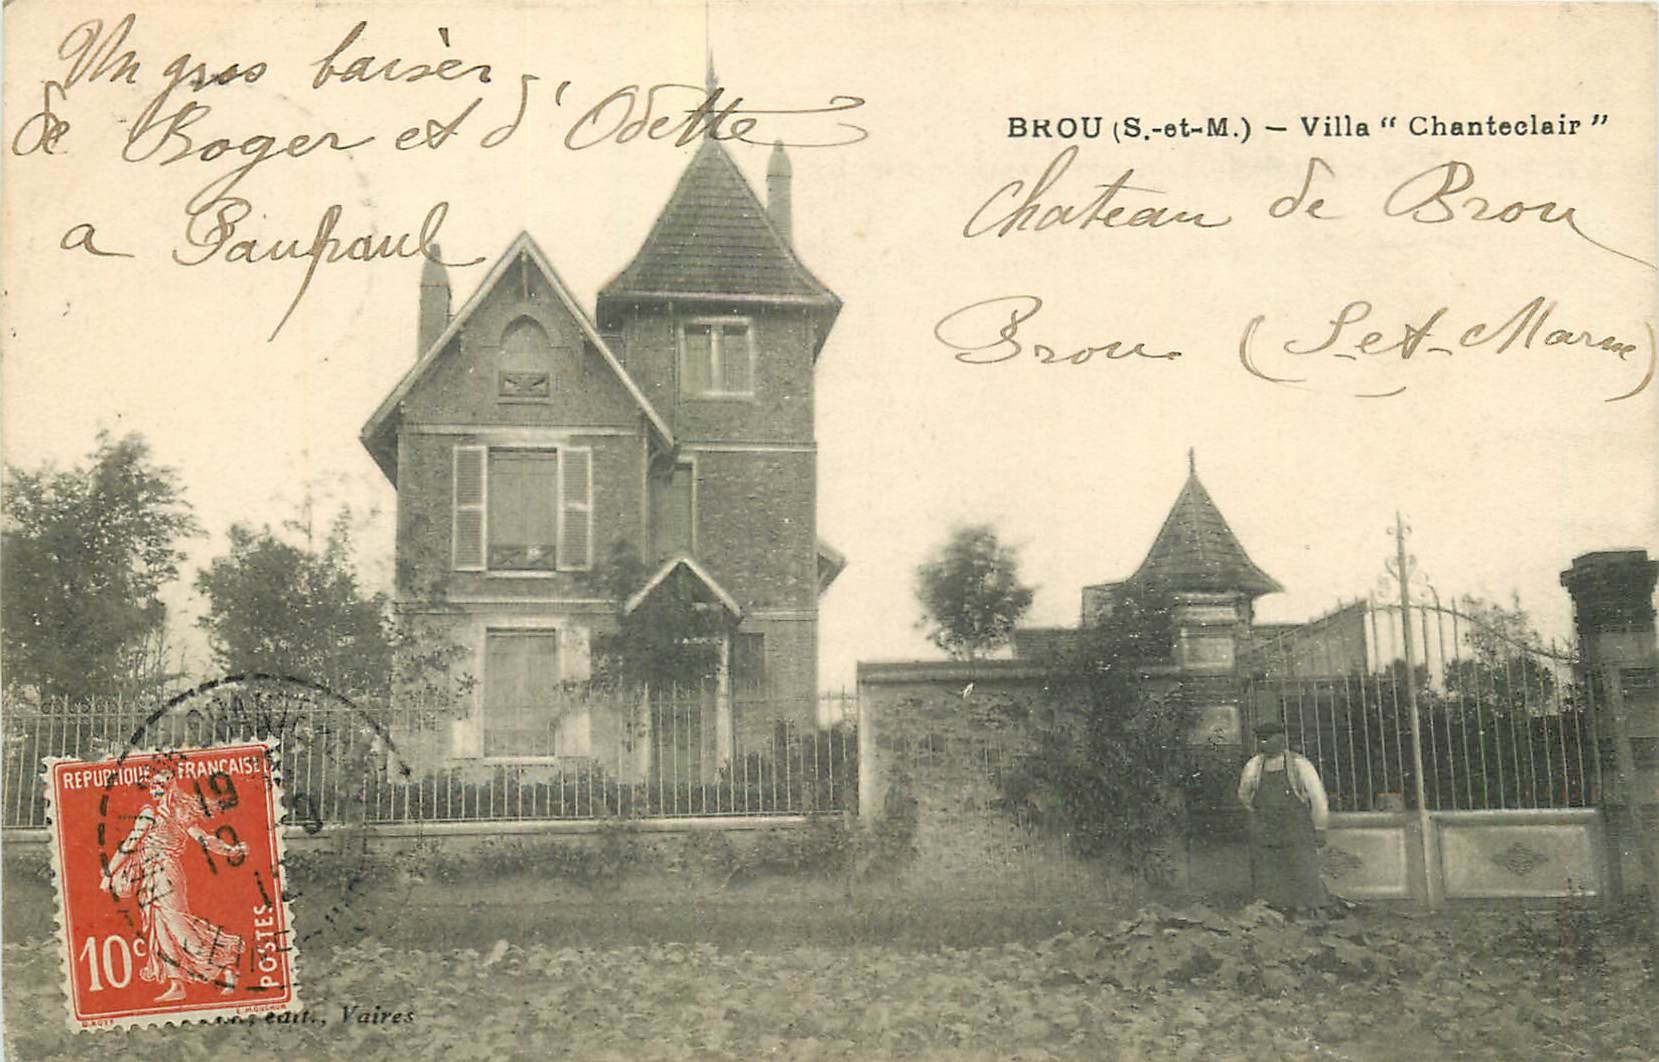 Un gros baisèr
de Roger et d'Odette
a Paupaul
BROU (S.-et-M.) — Villa " Chanteclair "
Chateau de Brou
Brou (S-et-Marne)
REPUBLIQUE FRANÇAISE
10c
POSTES
19
édit., Vaires